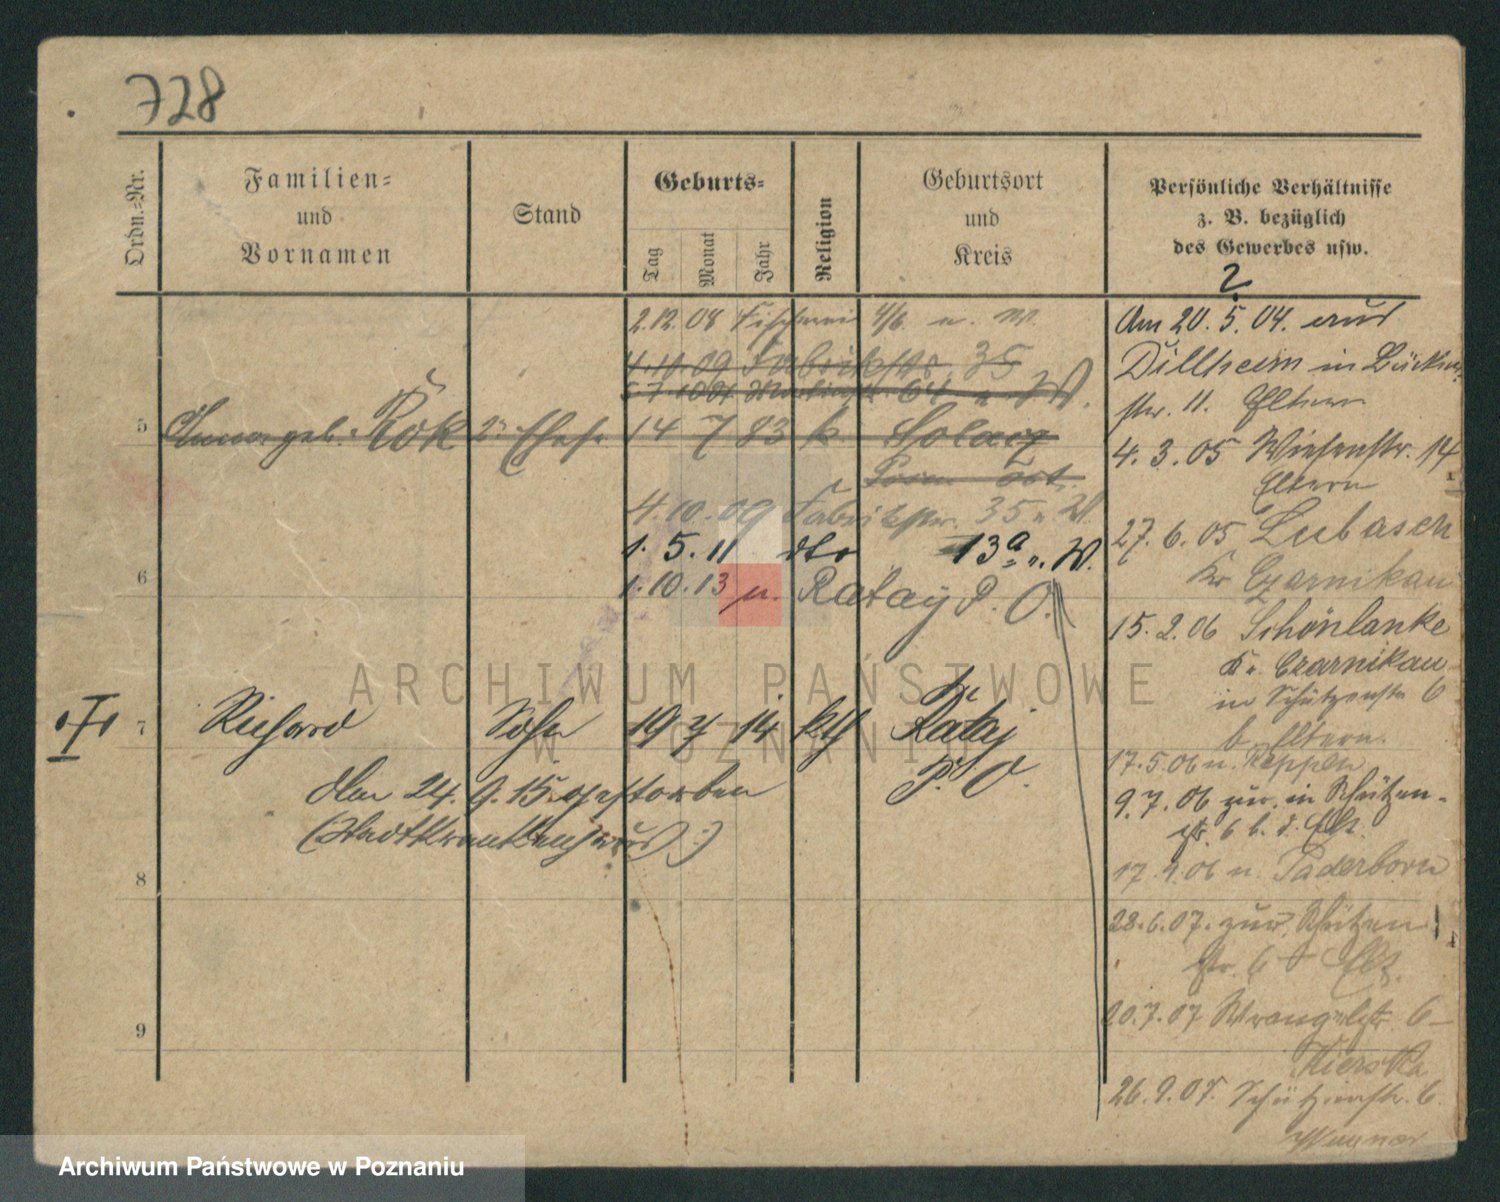 728
Ordn.-Nr.
Familien-
und
Vornamen
Stand
Geburts-
Tag
Monat
Jahr
Religion
Geburtsort
und
Kreis
Persönliche Verhältnisse
z. B. bezüglich
des Gewerbes usw.
2
2.12.08 Fischerei 4/6 u. W.
4.10.09 Fabrikstr. 35
64 u. W.
5 Anna geb. Rok 2. Ehefr. 14 7 83 k. Solacz
Posen Ost.
4.10.09 Fabrikstr. 35 u. W.
1. 5. 11 dto 13a u. W.
6 1.10.13 u. Rataj P. O.
7 Richard Sohn 19 2 14 kth Kr. Rataj
P. O.
den 24. 9. 15 gestorben
(Stadtkrankenhaus)
8
9
Am 20. 5. 04. aus
Dillheim in
str. 11. Eltern
4. 3. 05 Wiesenstr. 14
Eltern
27. 6. 05 Lubasch
Kr Czarnikau
15. 2. 06 Schönlanke
Kr. Czarnikau
in Schützenstr 6
b. Eltern.
17.5.06 n.
9.7.06 zur. in Schützen-
str. 6 b. d. Elt.
17. 9. 06 n. Paderborn
28.6.07. zur. Schützen
str. 6 Elt.
20.7.07 Wrangelstr 6
26.9.07. Schützenstr. 6.
ARCHIWUM PAŃSTWOWE
W POZNANIU
Archiwum Państwowe w Poznaniu